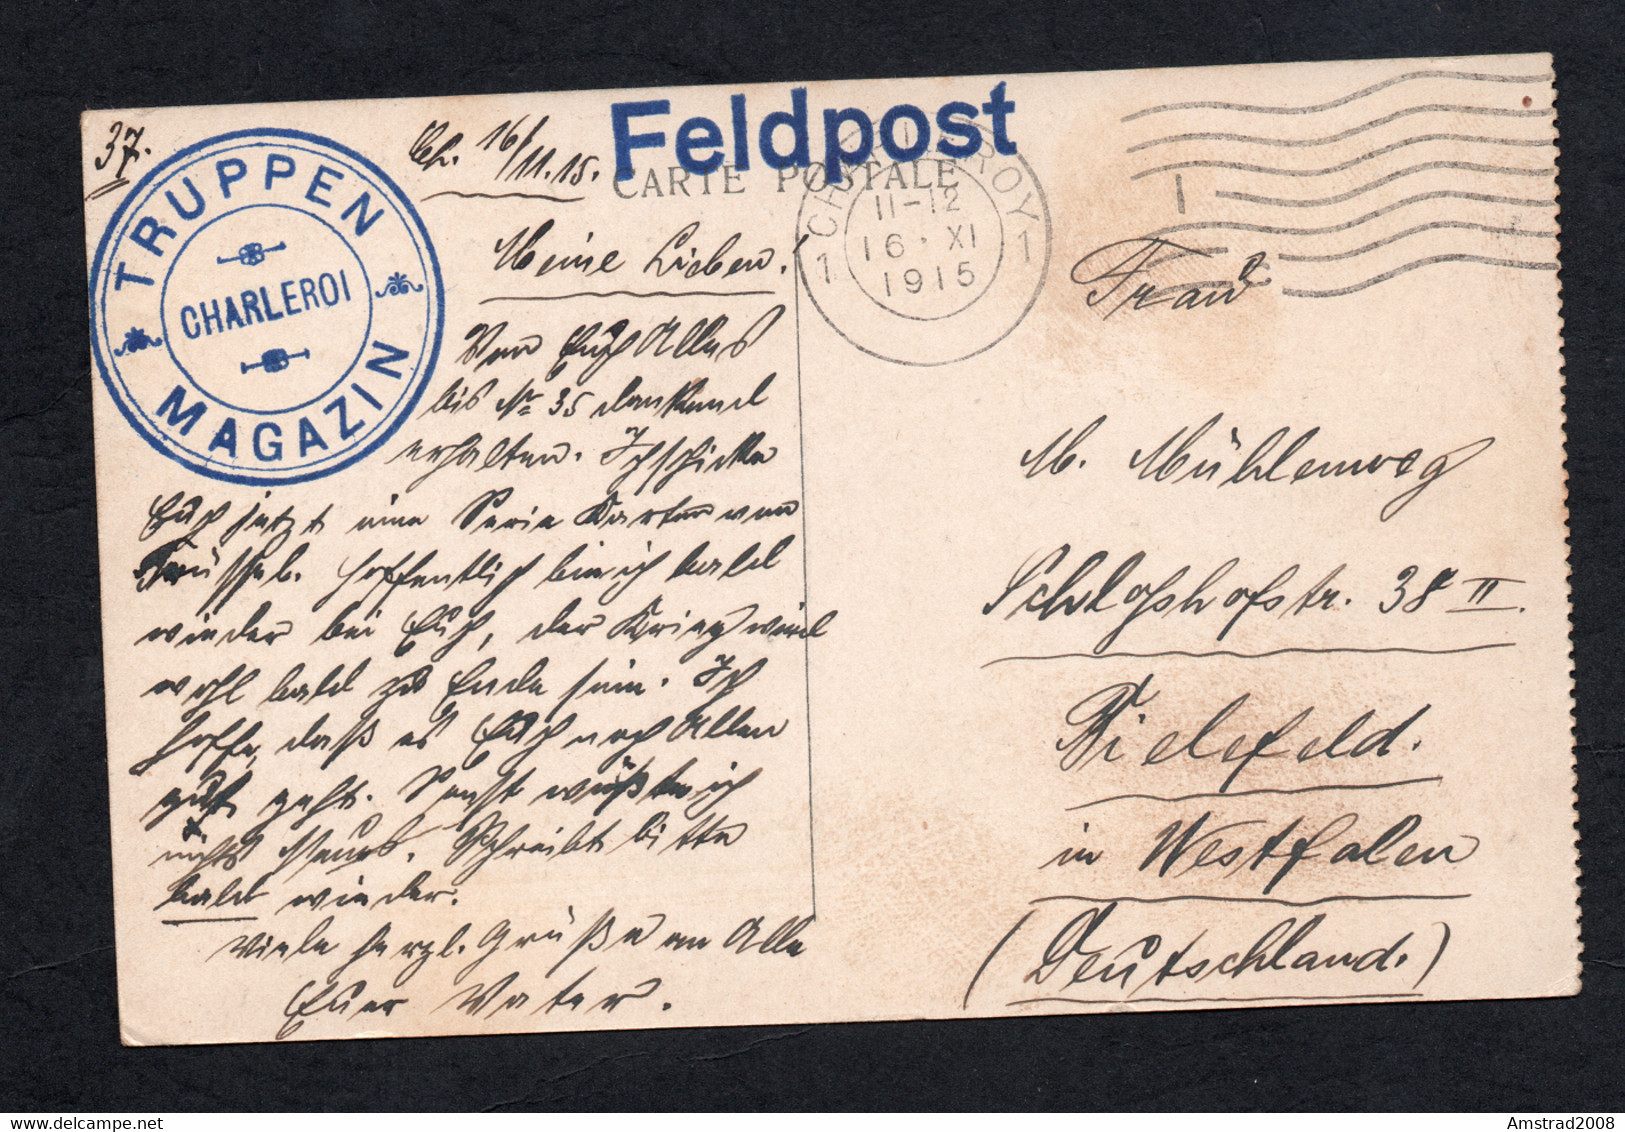 37.
TRUPPEN
MAGAZIN
CHARLEROI
Feldpost
CARTE POSTALE
CHARLEROY
1 1
11-12
16 · XI
1915
1
Ch. 16/11.15.
Meine Lieben!
Von Euch Alles
bis No 35 dankend
erhalten. Ich schicke
Euch jetzt eine Serie Karten von
Brüssel. Hoffentlich bin ich bald
wieder bei Euch, der Krieg wird
wohl bald zu Ende sein. Ich
hoffe, daß es Euch noch Allen
gut geht. Sonst wüßte ich
nichts Neues. Schreibt bitte
bald wieder.
Viele herzl. Grüße an Alle
Euer Vater.
Frau
M. Mühlenweg
Schloßhofstr. 38 II.
Bielefeld.
in Westfalen
(Deutschland.)
delcampe.net
Amstrad2008